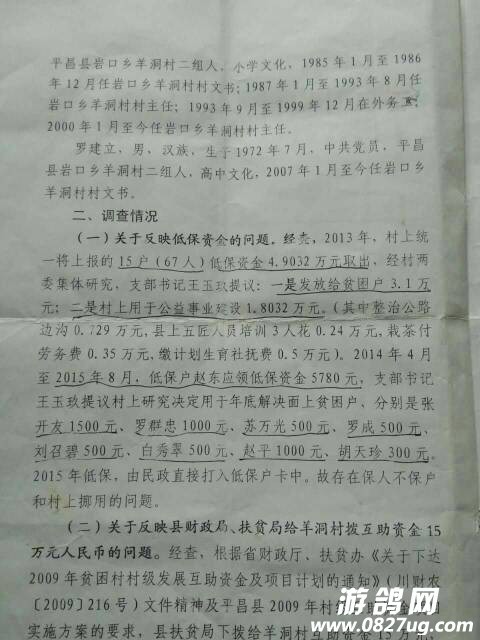 平昌县岩口乡羊洞村二组人，小学文化，1985年1月至1986
年12月任岩口乡羊洞村村文书；1987年1月至1993年8月任
岩口乡羊洞村村主任；1993年9月至1999年12月在外务工；
2000年1月至今任岩口乡羊洞村村主任。
罗建立，男、汉族，生于1972年7月，中共党员，平昌
县岩口乡羊洞村二组人，高中文化，2007年1月至今任岩口乡
羊洞村村文书。
二、调查情况
（一）关于反映低保资金的问题。经查，2013年，村上统
一将上报的15户（67人）低保资金4.9032万元取出，经村两
委集体研究，支部书记王玉玖提议：一是发放给贫困户3.1万
元；二是村上用于公益事业建设1.8032万元。（其中整治公路
边沟0.729万元，县上五匠人员培训3人花0.24万元，栽茶付
劳务费0.35万元，缴计划生育社抚费0.5万元）。2014年4月
至2015年8月，低保户赵东应领低保资金5780元，支部书记
王玉玖提议村上研究决定用于年底解决面上贫困户、分别是张
开友1500元、罗群忠1000元、苏万光500元、罗成500元、
刘召碧500元、白秀翠500元、赵平1000元、胡天珍300元。
2015年低保，由民政直接打入低保户卡中。故存在保人不保户
和村上挪用的问题。
（二）关于反映县财政局、扶贫局给羊洞村拨互助资金15
万元人民币的问题。经查，根据省财政厅、扶贫办《关于下达
2009年贫困村村级发展互助资金及项目计划的通知》（川财农
〔2009〕216号）文件精神及平昌县2009年村
实施方案的要求，县扶贫局下拨给羊洞村互助
游鸽网
www.0827ug.com